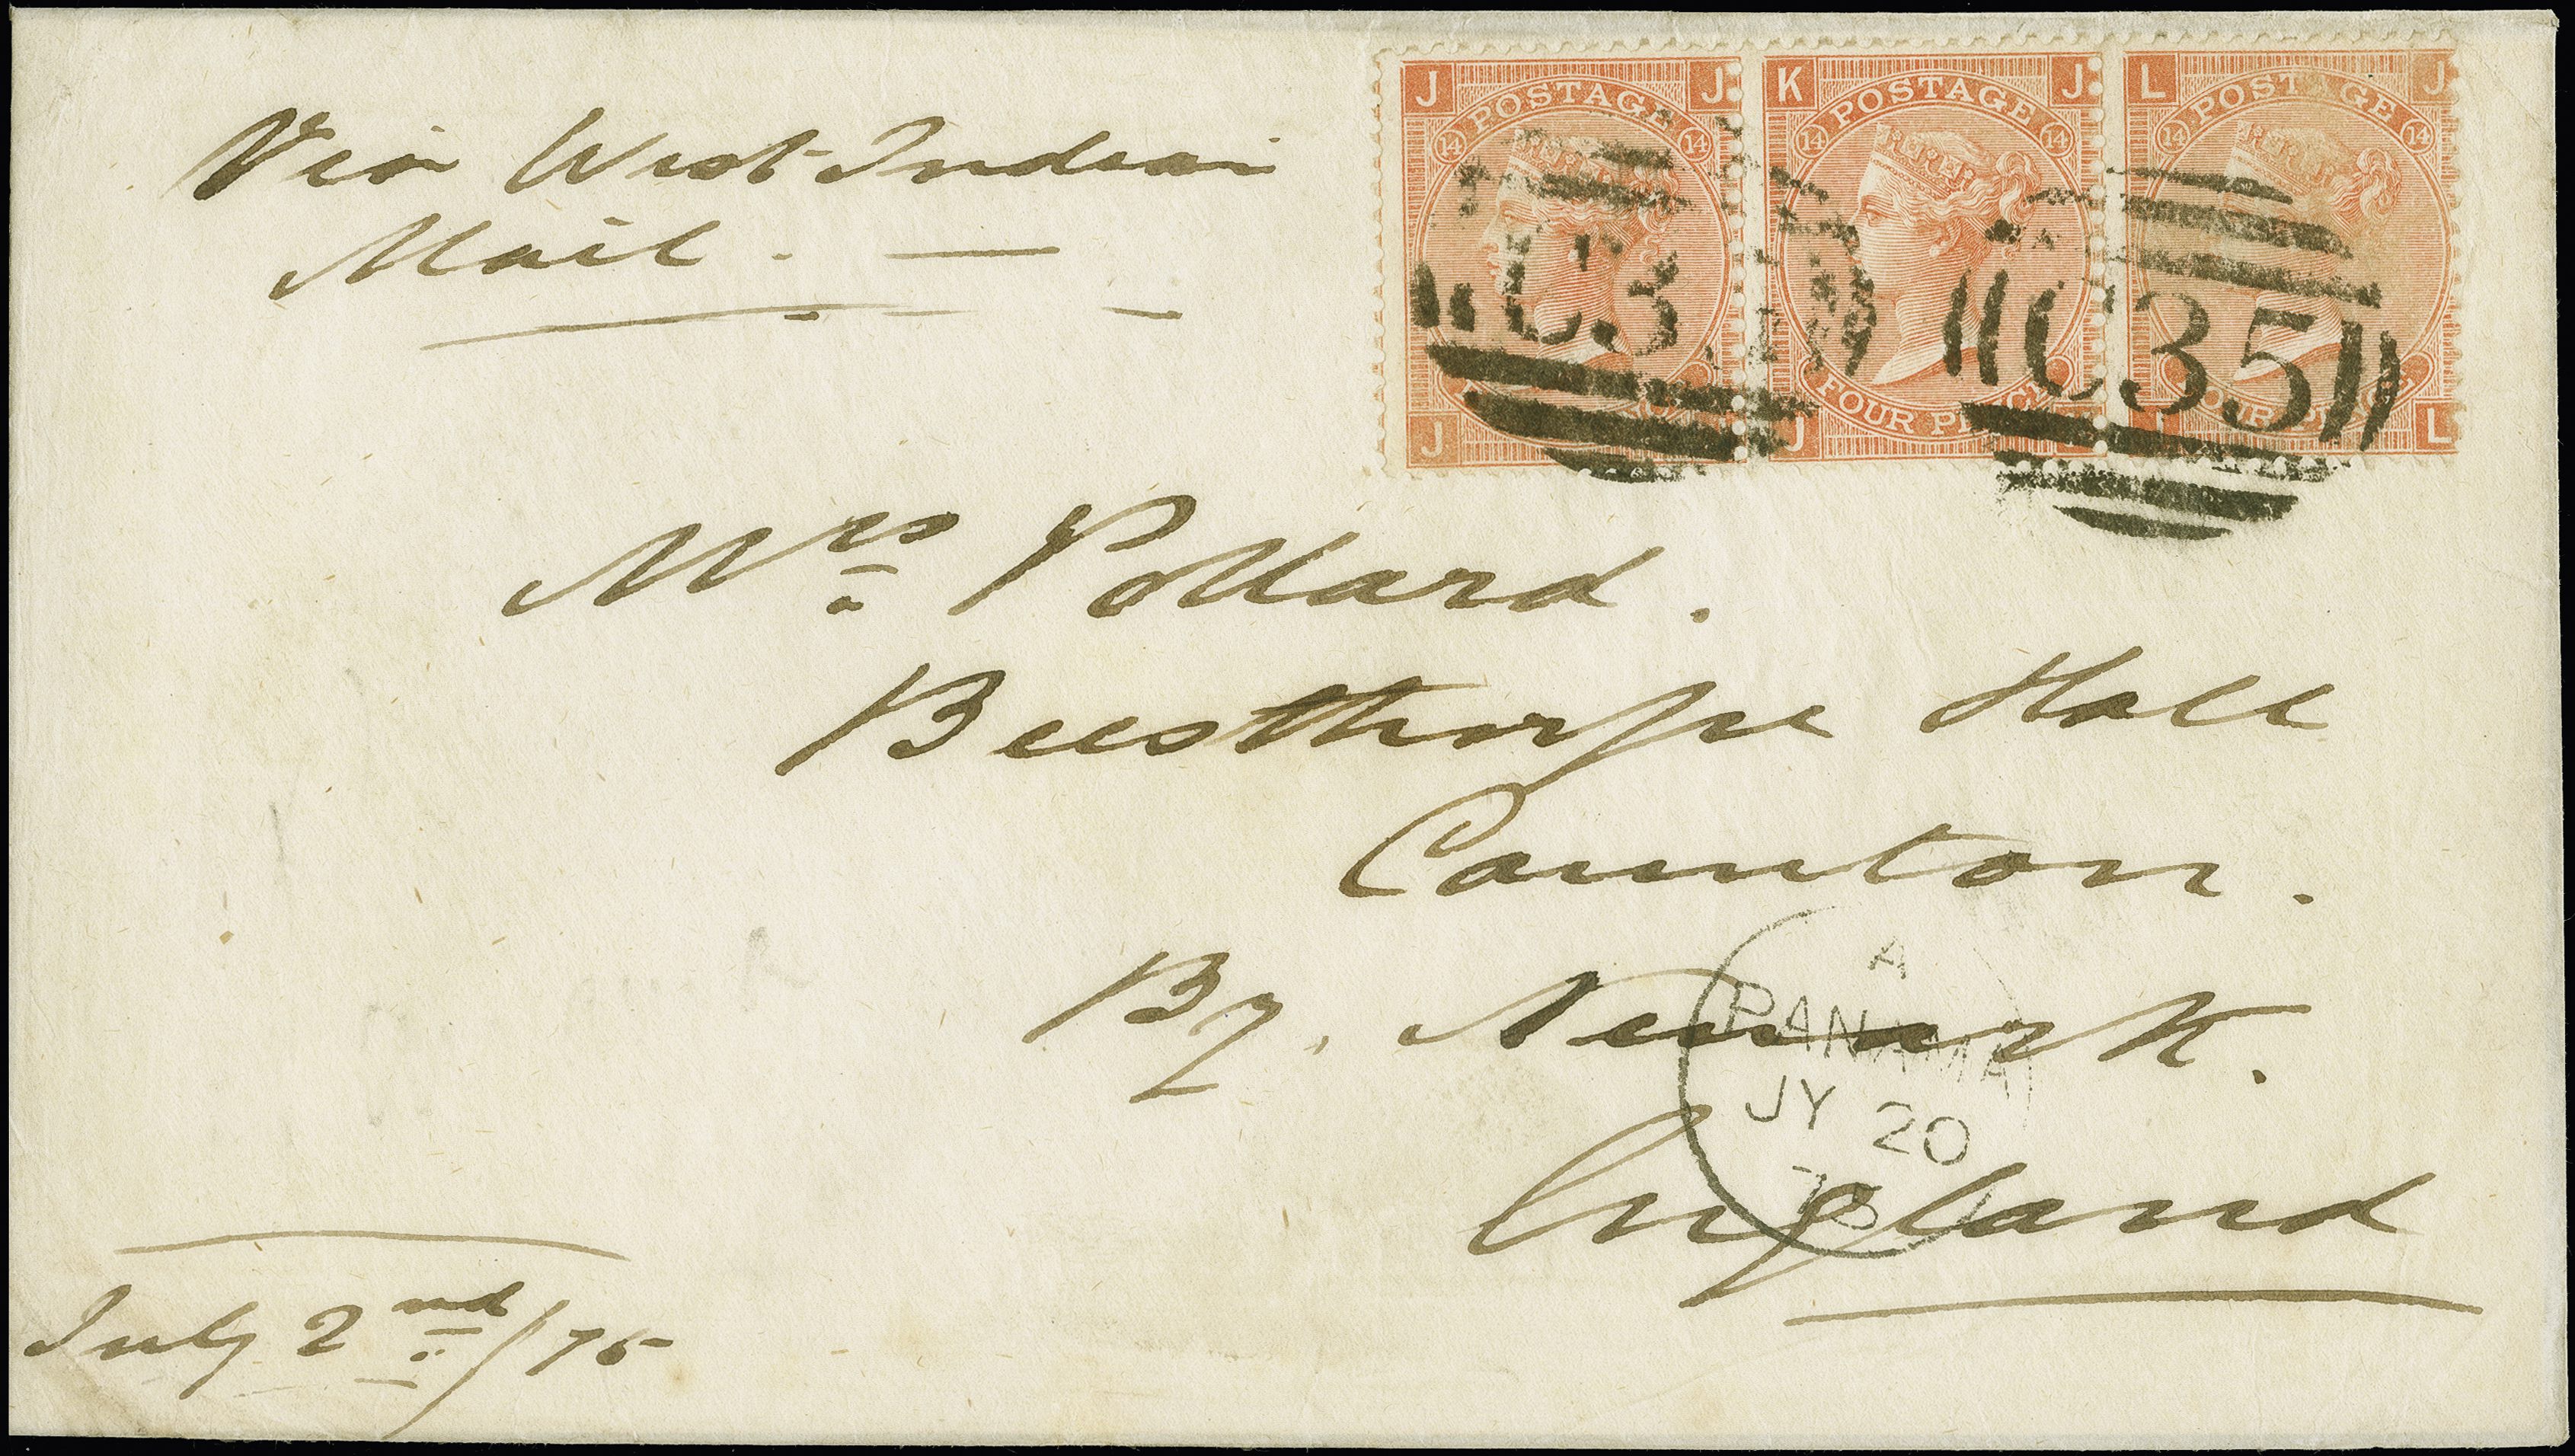 Via West Indian
Mail. —
J J K J L J
POSTAGE POSTAGE POSTAGE
14 14 14 14 14 14
C3 C35
FOUR PENCE
J J L
Mrs Pollard.
Beesthorpe Hall
Caunton.
By. Newark.
England
A
PANAMA
JY 20
75
July 2nd/75